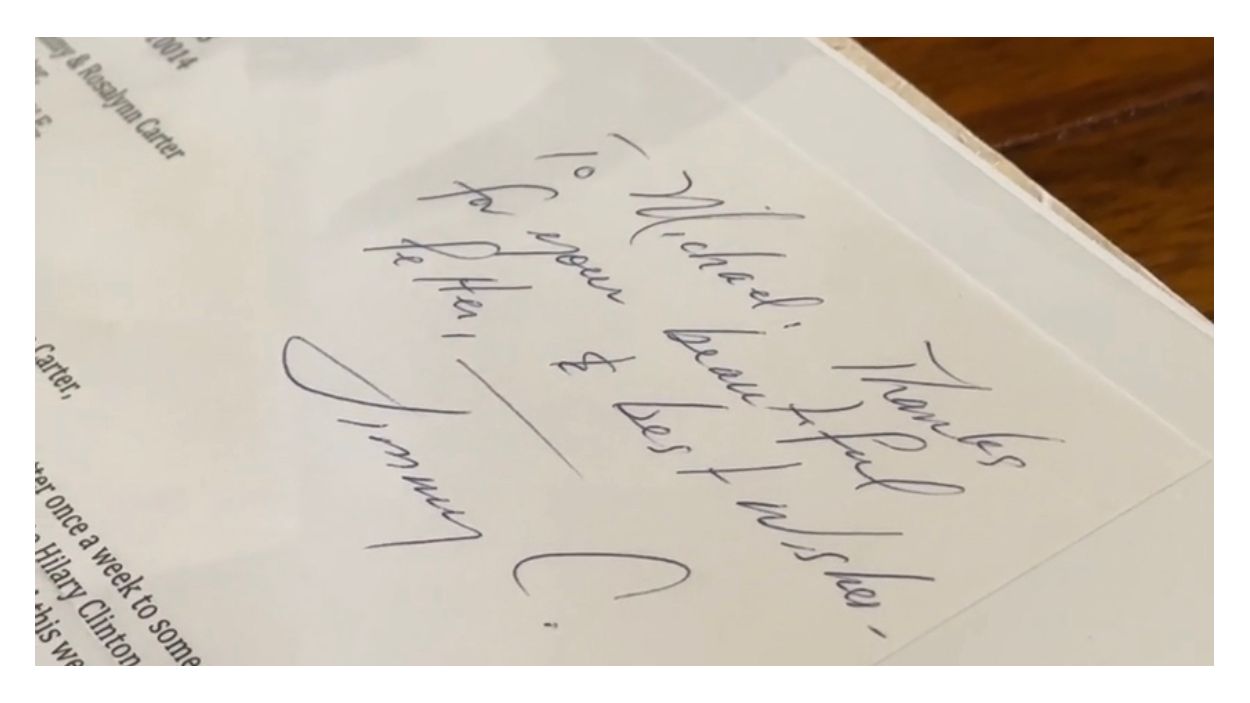 0014
my & Rosalynn Carter
Carter,
ter once a week to some
Hilary Clinton
this we
To Michael: Thanks
for your beautiful
letter, & best wishes -
Jimmy C.